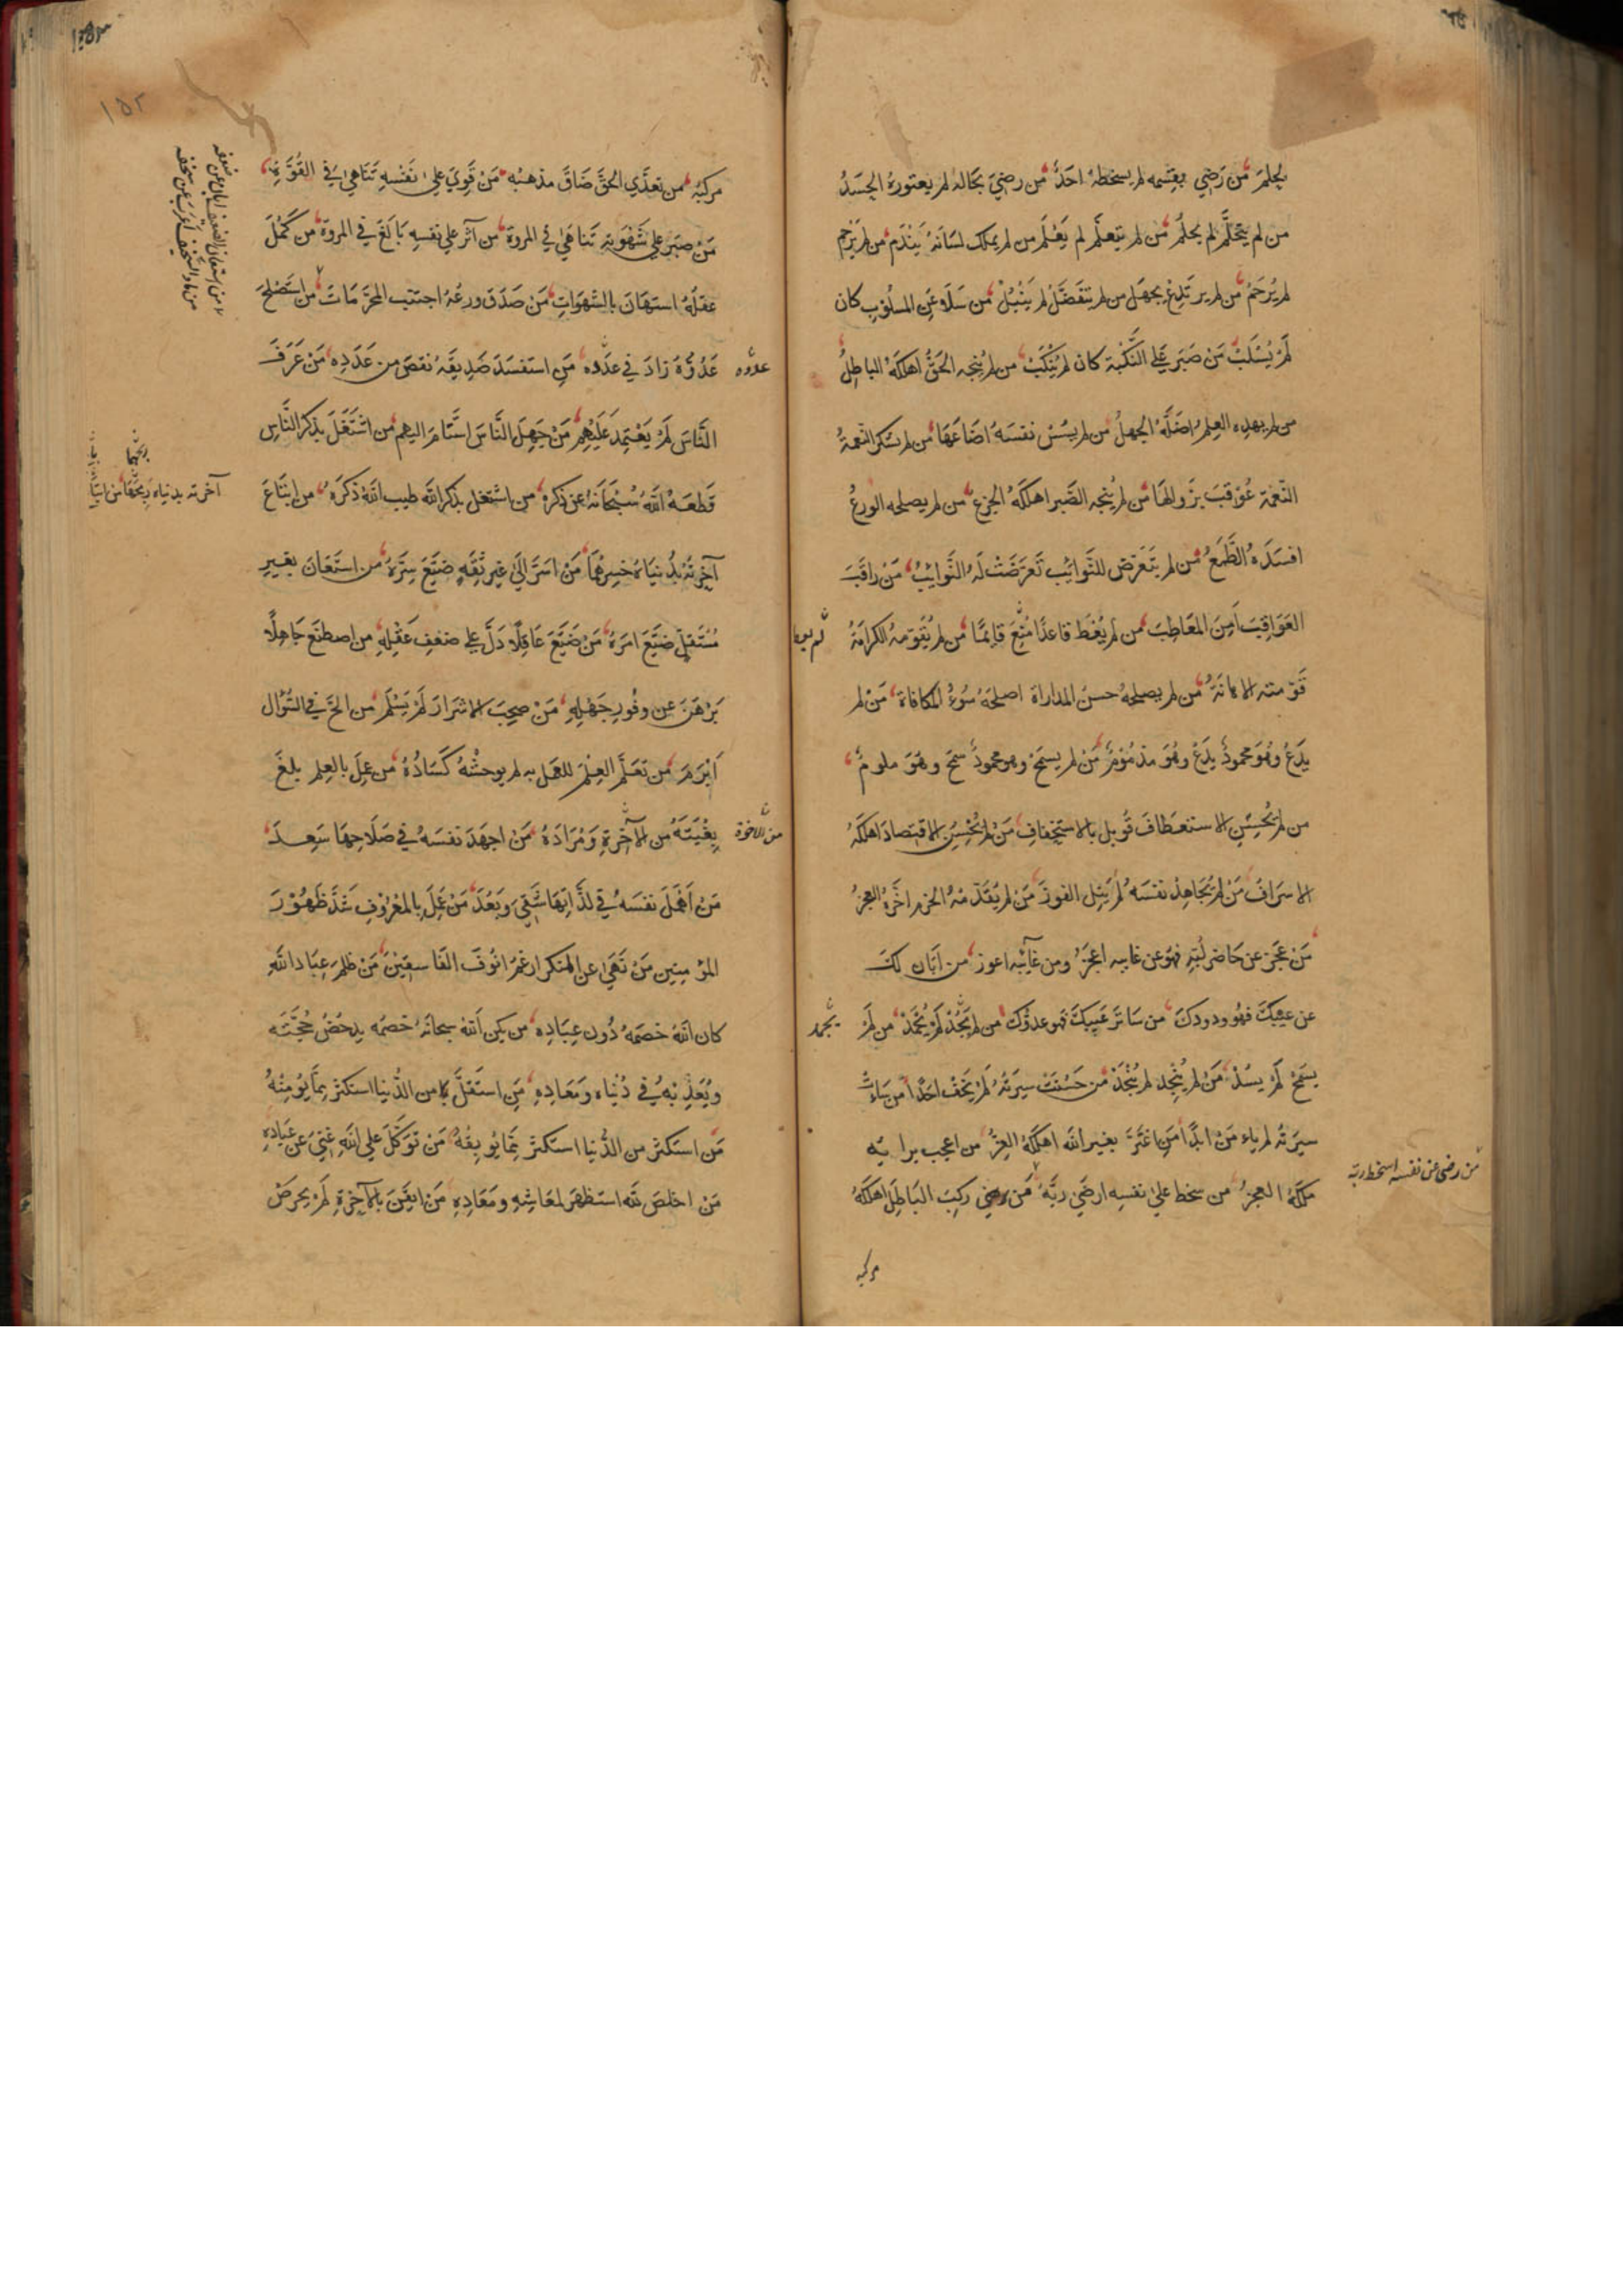 يحلم من رَضِي بقِسمه لم يسخطهُ احَدٌ من رضِيَ بحَالهُ لم يعتورهُ الحسَدُ
من لم يتحلَّم لم يحلُم من لم يتعلَّم لم يَعْلَم من لم يملك لسَانَهُ يَندَم من لم يَرحم
لم يُرحَمُ من لم يرتدِع يجهَل من لم يتفَضَّلُ لم يَنْبُلُ من سَلَا عَنِ المسلُوبِ كان
لَمْ يُسْلَبْ مَنْ صَبَرَ عَلَى النَّكْبَةِ كان لم يُنْكَبْ من لم يُنجهِ الحَقُّ اهلكَهُ الباطِلُ
من لم يهدِه العِلمُ اضَلَّهُ الجهلُ من لم يسُسْ نفسَهُ اضَاعَهَا من لم يشكر النعمةُ
النّعمَة عُوقبَ بزَوالهَا من لم يُنجهِ الصَّبر اهلكَهُ الجزعُ من لم يصلحه الورعُ
افسَدَهُ الطَّمَعُ من لم يتَعَرَّض للنَّوائِب تَعرَّضَتْ لَهُ النَّوائِبُ مَنْ راقَبَ
العَوَاقِبَ اَمِنَ المعَاطِبَ من لم يُعْطَ قاعدًا مُنِعَ قائِمًا من لم تُقَوِّمهُ الكرامَةُ
قَوَّمته الاهانَةُ من لم يصلحهُ حسنُ المداراة اصلحَهُ سُوءُ المكافاة مَنْ لم
يَدَعْ وهُوَ محمودٌ يدَعْ وهُوَ مذمُوْمٌ مَنْ لم يسمَحْ وهو محمودٌ سمَحَ وهُوَ ملومٌ
من لم يُحْسِنِ الاستعطَافَ قُوبل بالاستخفافِ مَنْ لم يُحْسِنِ الاقتِصادَ اهلكَهُ
الاسرَافُ مَنْ لم يُجَاهِدْ نفسَهُ لم يَنِلِ الفوزَ مَنْ لم يُقَدِّمْهُ الحَزم اخَّرَهُ العجزُ
مَنْ عجَزَ عن حَاضر لُبِّهِ فهوَ عن غايبه اعجَزُ ومن غائِبه اعوز من اَبَان لكَ
عن عيبكَ فهُو ودودكَ من سَاتَرَ عَيبَكَ فهو عدوُّك من لم يَجُدْ لَمْ يُحْمَدْ من لَمْ
يسمَحْ لَمْ يسُدْ مَنْ لم يُنْجِد لم يُنْجَدْ من حَسُنَتْ سِيرَتُهُ لَمْ يَخَفْ احَدًا مَنْ سَاءَتْ
سيرَتُه لم يامَنْ ابدًا مَنِ اغْتَرَّ بغير الله اهلكَهُ العِزُّ من اعجب برايه
ملكَهُ العجزُ من سخط علىٰ نفسِه ارضَى ربَّهُ مَن رضي ركبَ البَاطِلَ اهلكَهُ
لم يعط
يحمد
من رضى عن نفسه اسخط ربه
مركبه
١٥٢
مركبُه من تعدَّي الحقَّ ضَاقَ مذهبُه مَنْ قَوِيَ علىٰ نَفْسِهِ تَنَاهىٰ فِي القُوَّةِ
مَنْ صبَر على شَهْوَتِهِ تَناهَىٰ في المروة من آثَر على نفسِه بَالَغَ في المروة من كَمُلَ
عقلُهُ استهَانَ بالشهَواتِ مَنْ صَدَقَ ورعُهُ اجتنب المحرَّمَاتَ من استَصْلَحَ
عَدُوَّهُ زادَ في عدَدِه مَنِ استفسَدَ صَدِيقَهُ نقصَ من عَدَدِه مَنْ عَرَفَ
النَّاسَ لَمْ يَعْتمِد عَلَيهِمْ مَنْ جَهِلَ النَّاسَ استَنامَ اليهم من اشتَغَلَ بذِكر النَّاسِ
قَطعَهُ اللهُ سُبْحَانَهُ عن ذكره من اشتغل بذكر الله طيب اللهُ ذكرَهُ من ابتَاعَ
آخِرتَهُ بدُنيَاهُ خسِرهُمَا مَنْ اسَرَّ اِلَىٰ غيرِ ثِقَةٍ ضَيَّعَ سِرَّهُ من استَعَانَ بغيرِ
مُسْتَقِلٍّ ضَيَّعَ امرَهُ مَنْ ضَيَّعَ عَاقِلًا دَلَّ على ضعفِ عَقْلِهِ من اصطنَع جَاهِلًا
بَرْهَنَ عن وفُورِ جَهْلِهِ مَنْ صحِبَ الاشرَارَ لَمْ يَسْلَم من الحَّ في السُّؤال
اَبْرَمَ من تعلَّمَ العِلْمَ للعَمَل به لم يوحشْهُ كسَادُهُ من عمِلَ بالعِلم بلغَ
بِغْيَتَهُ من الآخِرةِ وَمُرَادَهُ مَنْ اجهَدَ نفسَهُ في صَلَاحِهَا سَعِدَ
مَنْ اَهْمَلَ نفسَهُ في لذَّاتِهَا شَقِيَ وَبَعُدَ مَنْ عَمِلَ بالمعْرُوفِ شَدَّ ظهُوْرَ
المؤمنين مَنْ نَهَىٰ عن المنكر ارغمَ انُوفَ الفَاسِقِيْنَ مَنْ ظلَمَ عِبَادَ اللهِ
كان اللهُ خصمَهُ دُون عِبَادِه من يكن اللهُ سبحانَهُ خصمَه يدحُضْ حُجَّتَه
ويُعَذِّبْهُ في دُنْيَاه ومَعَادِهِ مَنِ استَقلَّ من الدُّنيا استكثَر مِمَّا يُومِنُهُ
مَن استكثَر من الدُّنيا استكثَر مِمَّا يُوبِقُهُ مَنْ تَوَكَّلَ على اللهِ غَنِيَ عَن عِبَادِهِ
مَنْ اخلصَ لله استظهَر لمعَاشِهِ ومَعَادِهِ مَن ايقَنَ بالآخِرَةِ لَمْ يحرِصْ
عدوه
من الآخرة
آخرته بدنياه